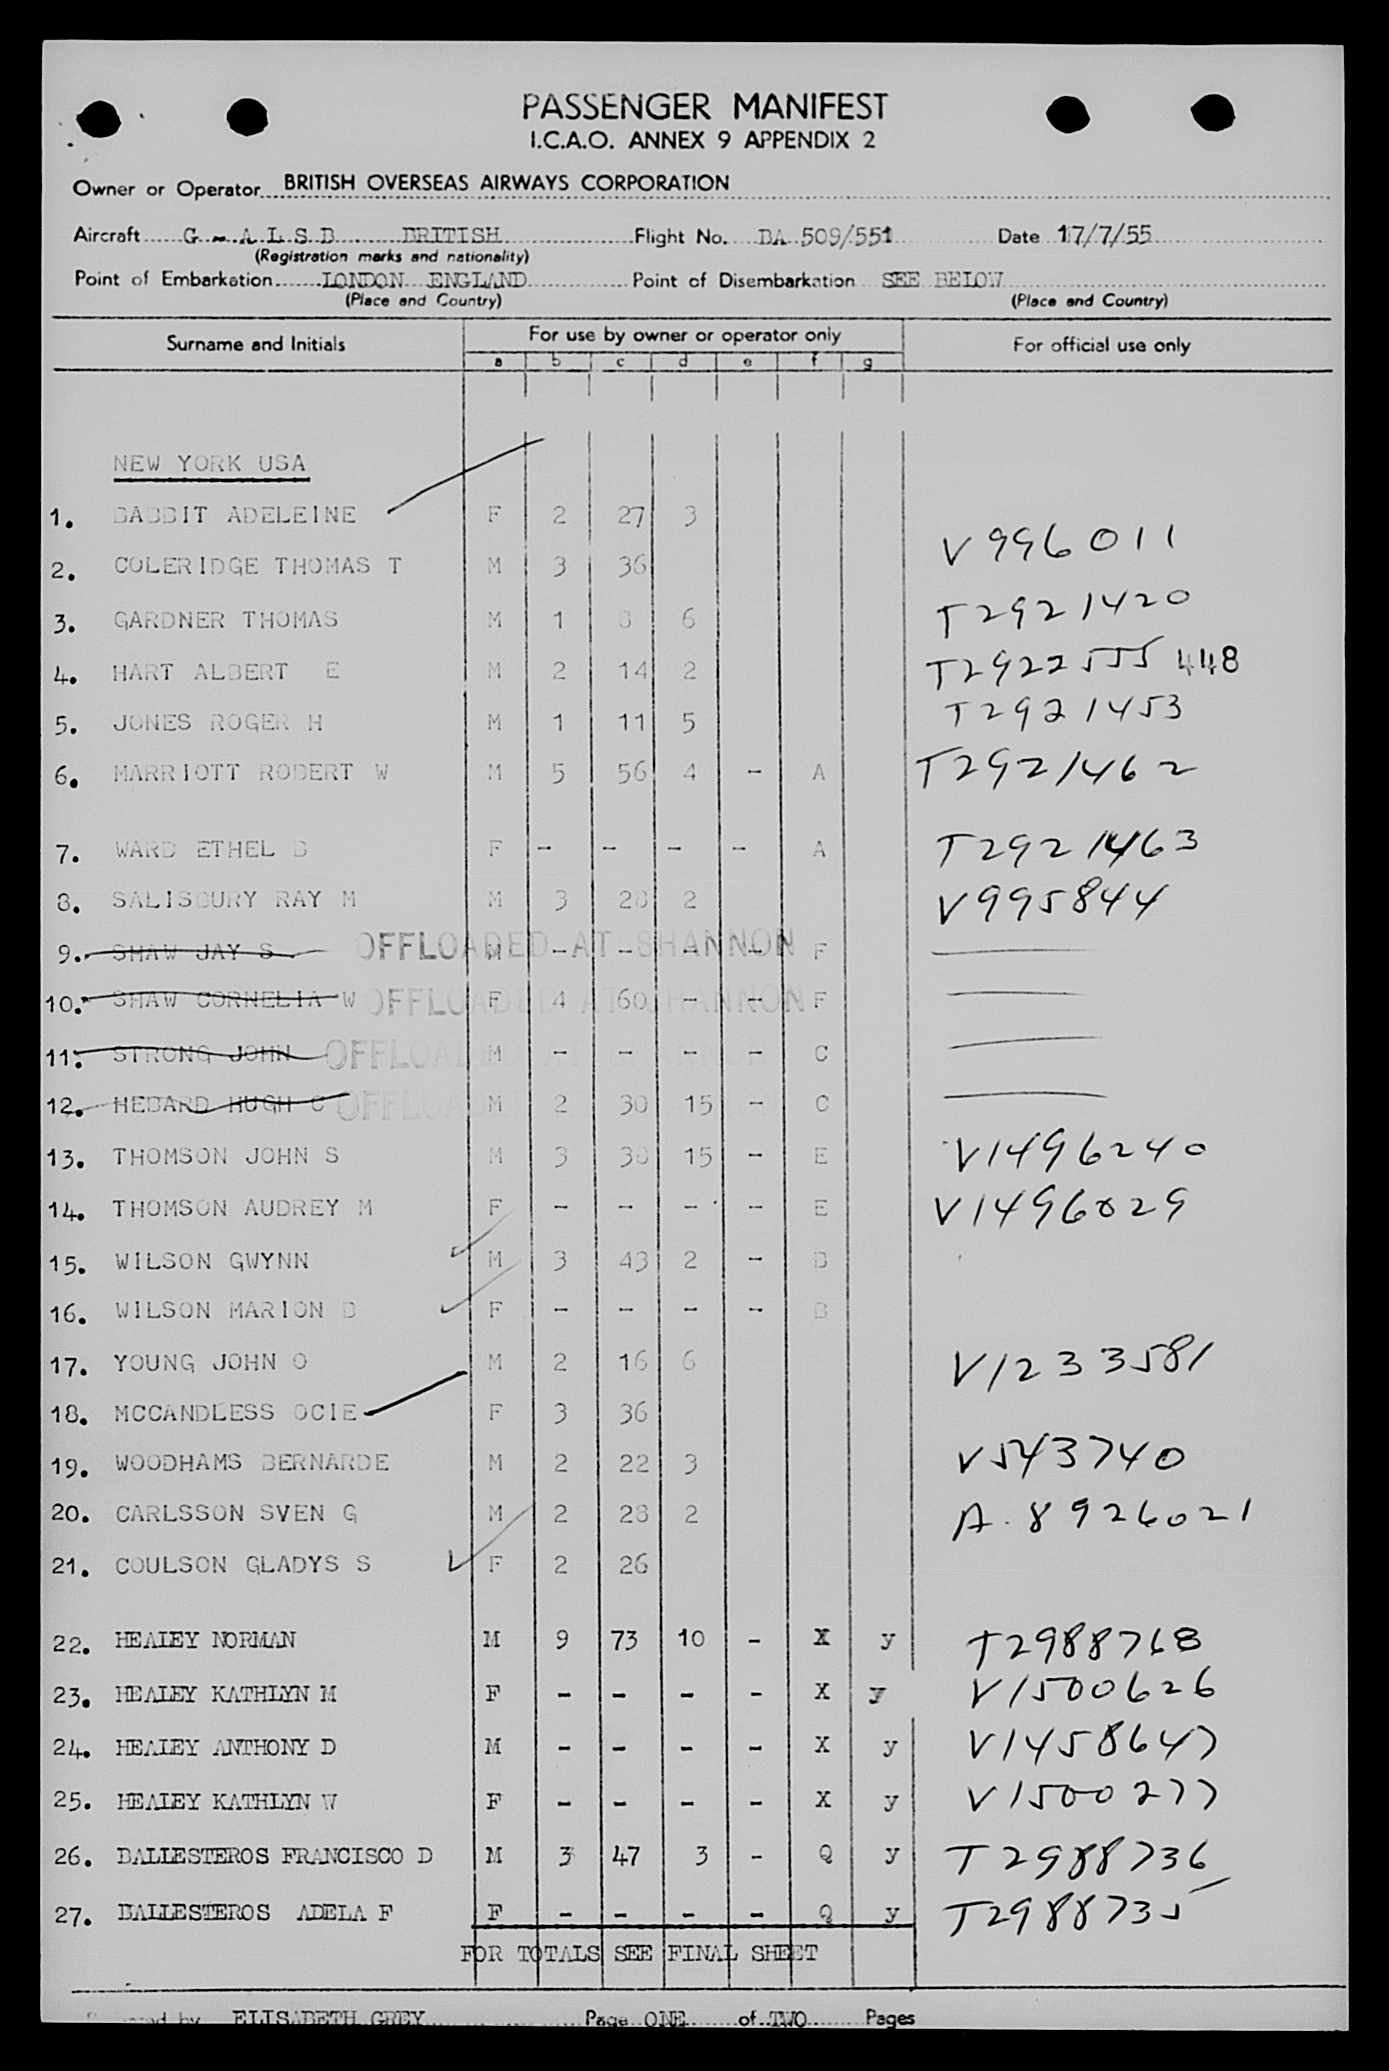 PASSENGER MANIFEST
I.C.A.O. ANNEX 9 APPENDIX 2
Owner or Operator BRITISH OVERSEAS AIRWAYS CORPORATION
Aircraft G - A L S D BRITISH Flight No. BA 509/551 Date 17/7/55
(Registration marks and nationality)
Point of Embarkation LONDON ENGLAND Point of Disembarkation SEE BELOW
(Place and Country) (Place and Country)
Surname and Initials For use by owner or operator only For official use only
a b c d e f g
NEW YORK USA
1. BABBIT ADELEINE F 2 27 3
2. COLERIDGE THOMAS T M 3 36 V996011
3. GARDNER THOMAS M 1 8 6 T2921420
4. HART ALBERT E M 2 14 2 T2922555 448
5. JONES ROGER H M 1 11 5 T2921453
6. MARRIOTT ROBERT W M 5 56 4 - A T2921462
7. WARD ETHEL B F - - - - A T2921463
8. SALISBURY RAY M M 3 28 2 V995844
9. SHAW JAY S OFFLOADED AT SHANNON M - - - - F
10. SHAW CORNELIA W OFFLOADED AT SHANNON F 4 60 - - F
11. STRONG JOHN OFFLOADED AT SHANNON M - - - - C
12. HEBARD HUGH C OFFLOADED M 2 30 15 - C
13. THOMSON JOHN S M 3 38 15 - E V1496240
14. THOMSON AUDREY M F - - - - E V1496029
15. WILSON GWYNN M 3 43 2 - B
16. WILSON MARION B F - - - - B
17. YOUNG JOHN O M 2 16 6 V1233581
18. MCCANDLESS OCIE F 3 36
19. WOODHAMS BERNARDE M 2 22 3 V543740
20. CARLSSON SVEN G M 2 28 2 A.8926021
21. COULSON GLADYS S F 2 26
22. HEALEY NORMAN M 9 73 10 - X y T2988768
23. HEALEY KATHLYN M F - - - - X y V1500626
24. HEALEY ANTHONY D M - - - - X y V1458647
25. HEALEY KATHLYN W F - - - - X y V1500277
26. BALLESTEROS FRANCISCO D M 3 47 3 - Q y T2988736
27. BALLESTEROS ADELA F F - - - - Q y T2988735
FOR TOTALS SEE FINAL SHEET
by ELISABETH GREY Page ONE of TWO Pages